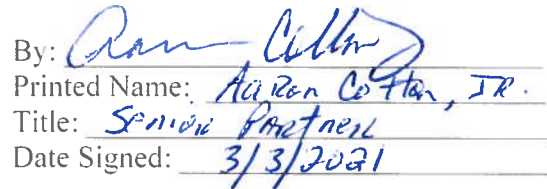 By: Aaron Cotton
Printed Name: Aaron Cotton, JR.
Title: Senior Partner
Date Signed: 3/3/2021